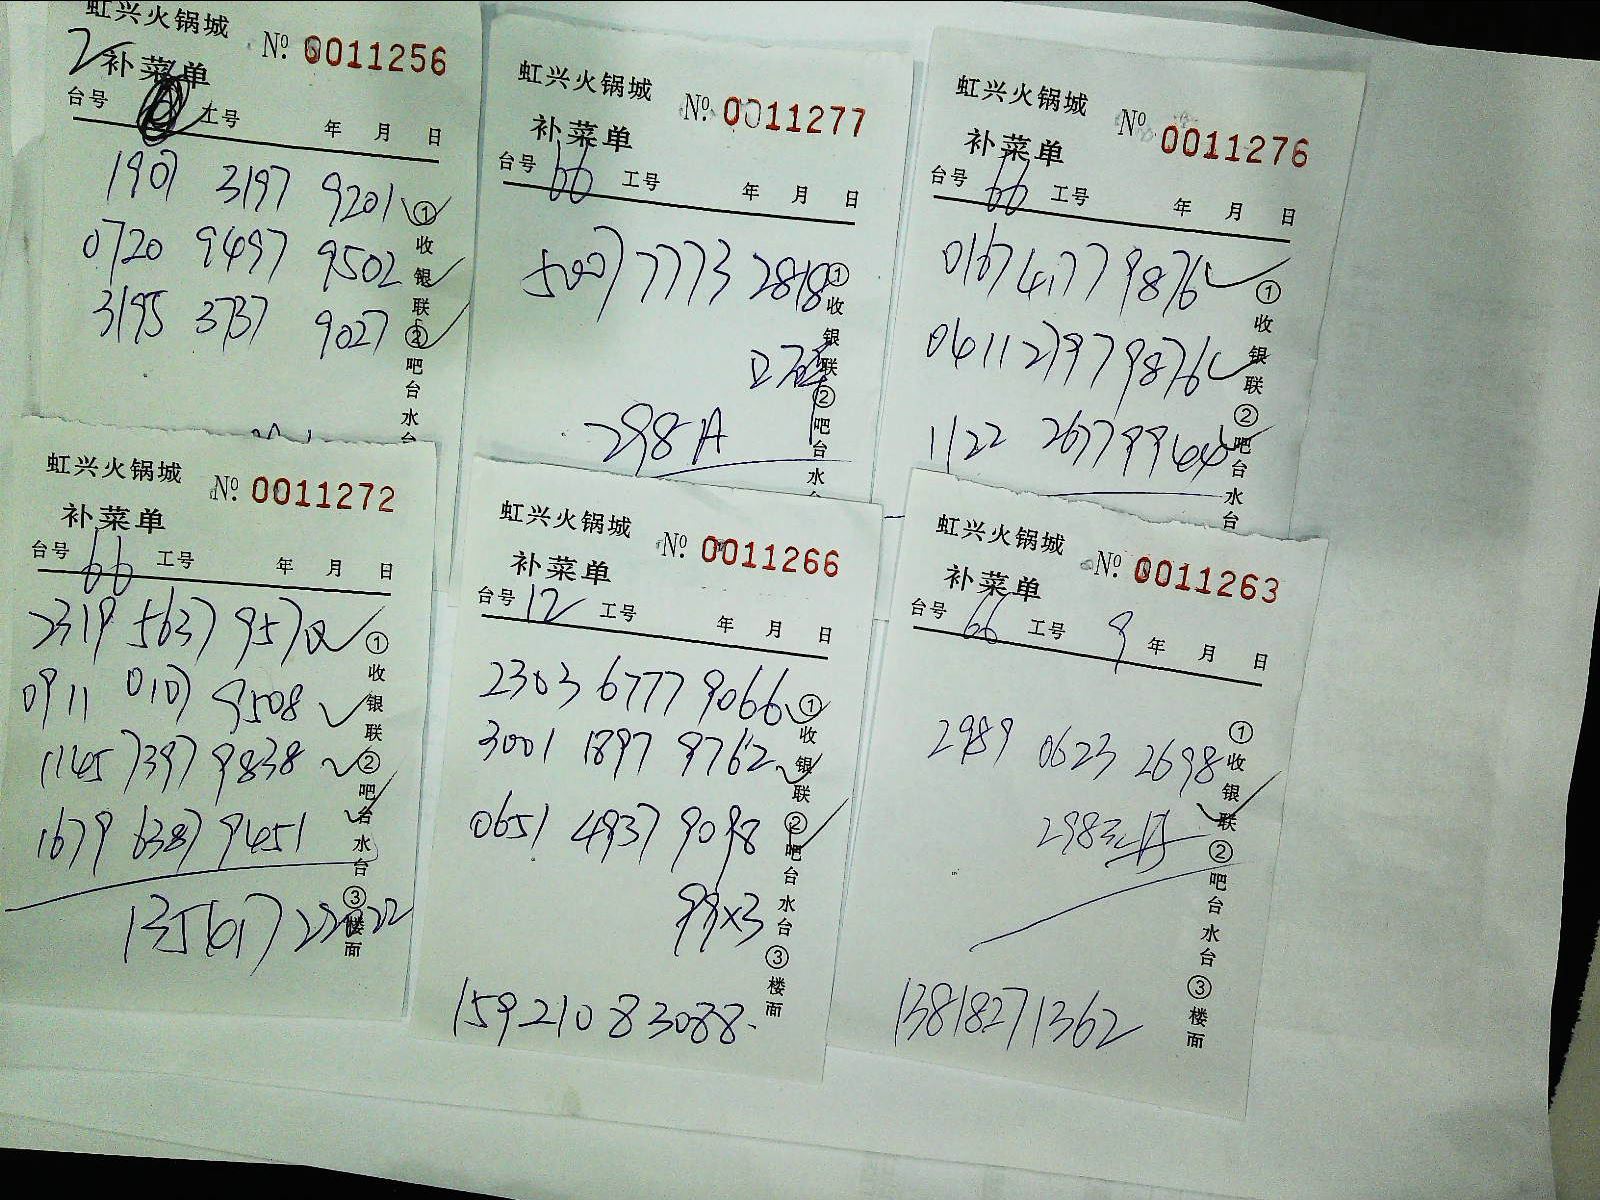 虹兴火锅城 Nº 0011256
补菜单
台号 工号 年 月 日
1907 3197 9201
0720 9497 9502
3195 3737 9027
①收银联②吧台水台
虹兴火锅城 Nº 0011277
补菜单
台号 66 工号 年 月 日
5007 7773 2818
298A
①收银联②吧台水台
虹兴火锅城 Nº 0011276
补菜单
台号 66 工号 年 月 日
0167 4177 9876
0411 2797 9876
1122 2677 9944
①收银联②吧台水台
虹兴火锅城 Nº 0011272
补菜单
台号 66 工号 年 月 日
2319 5637 9570
0911 0107 9508
1145 7397 9838
1679 6387 9451
①收银联②吧台水台③楼面
虹兴火锅城 Nº 0011266
补菜单
台号 12 工号 年 月 日
2303 6777 9066
3001 1897 9762
0651 4937 9098
99x3
15921083088
①收银联②吧台水台③楼面
虹兴火锅城 Nº 0011263
补菜单
台号 66 工号 9 年 月 日
2989 0623 2698
13818271362
①收银联②吧台水台③楼面